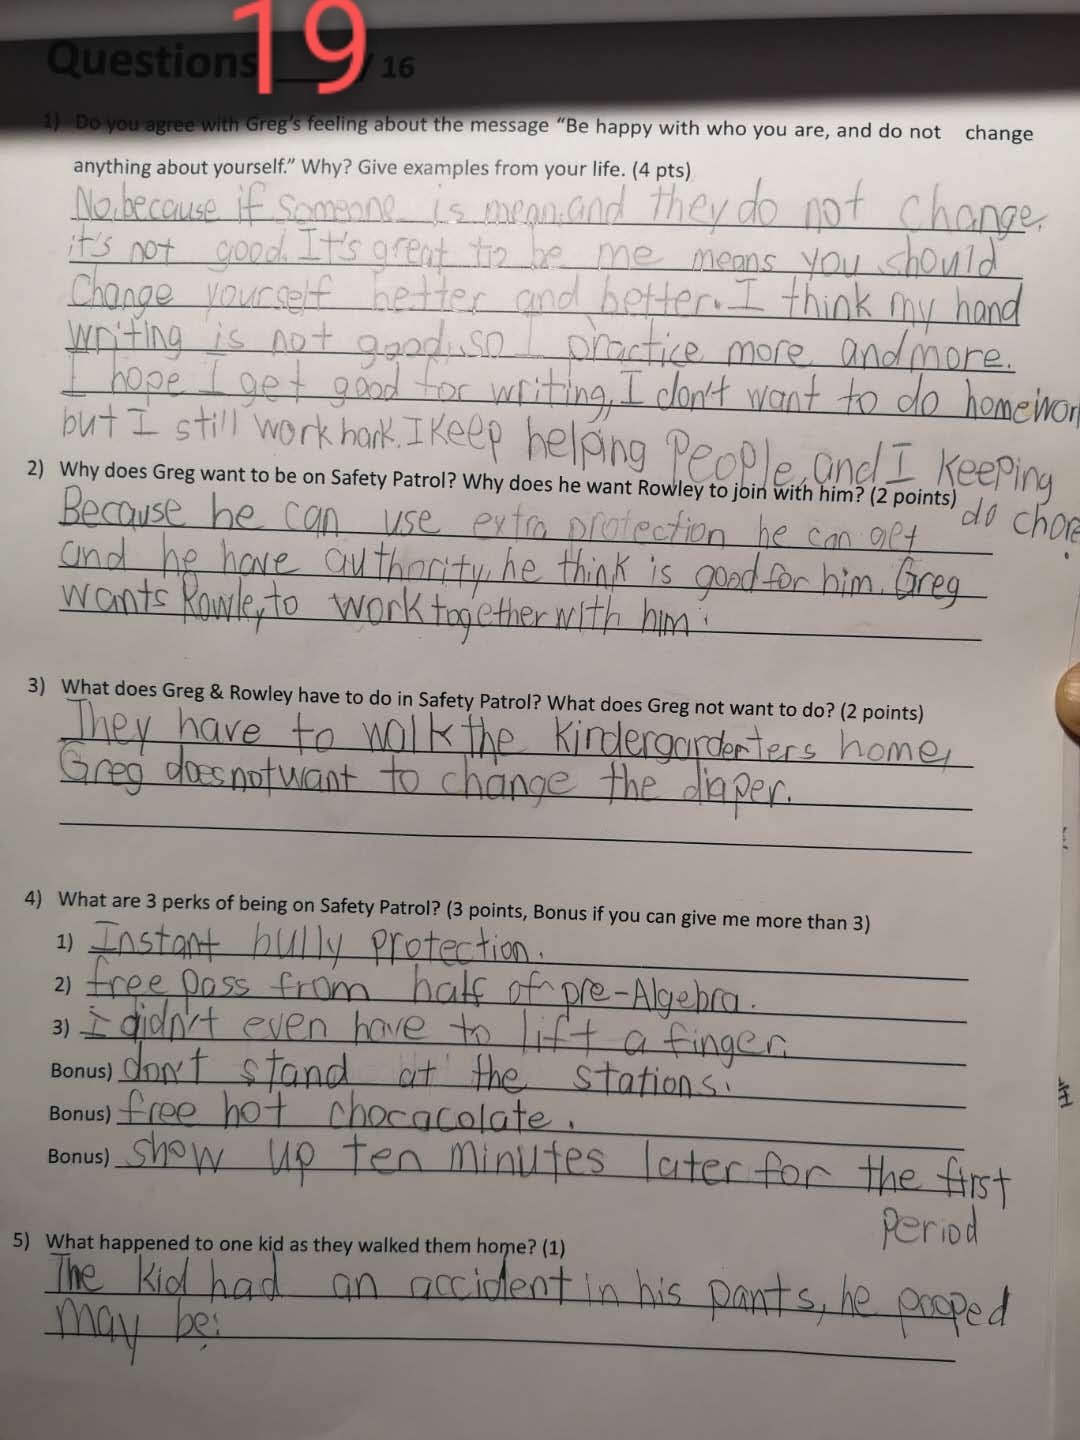 Questions 19/16
1) Do you agree with Greg's feeling about the message "Be happy with who you are, and do not change
anything about yourself." Why? Give examples from your life. (4 pts)
No, because if someone is mean, and they do not change,
it's not good. It's great to be me means you should
Change yourself better and better. I think my hand
writing is not good, so I practice more and more.
I hope I get good for writing, I don't want to do homework
but I still work hark. I keep helping People, and I keeping
do chore.
2) Why does Greg want to be on Safety Patrol? Why does he want Rowley to join with him? (2 points)
Because he can use extra protection he can get
and he have authority, he think is good for him. Greg
wants Rowley to work together with him.
3) What does Greg & Rowley have to do in Safety Patrol? What does Greg not want to do? (2 points)
They have to walk the kindergardenters home,
Greg does not want to change the diaper.
4) What are 3 perks of being on Safety Patrol? (3 points, Bonus if you can give me more than 3)
1) Instant bully protection.
2) free pass from half of pre-Algebra.
3) I didn't even have to lift a finger.
Bonus) don't stand at the stations.
Bonus) free hot chocacolate.
Bonus) show up ten minutes later for the first
period
5) What happened to one kid as they walked them home? (1)
The kid had an accident in his pants, he pooped
may be.